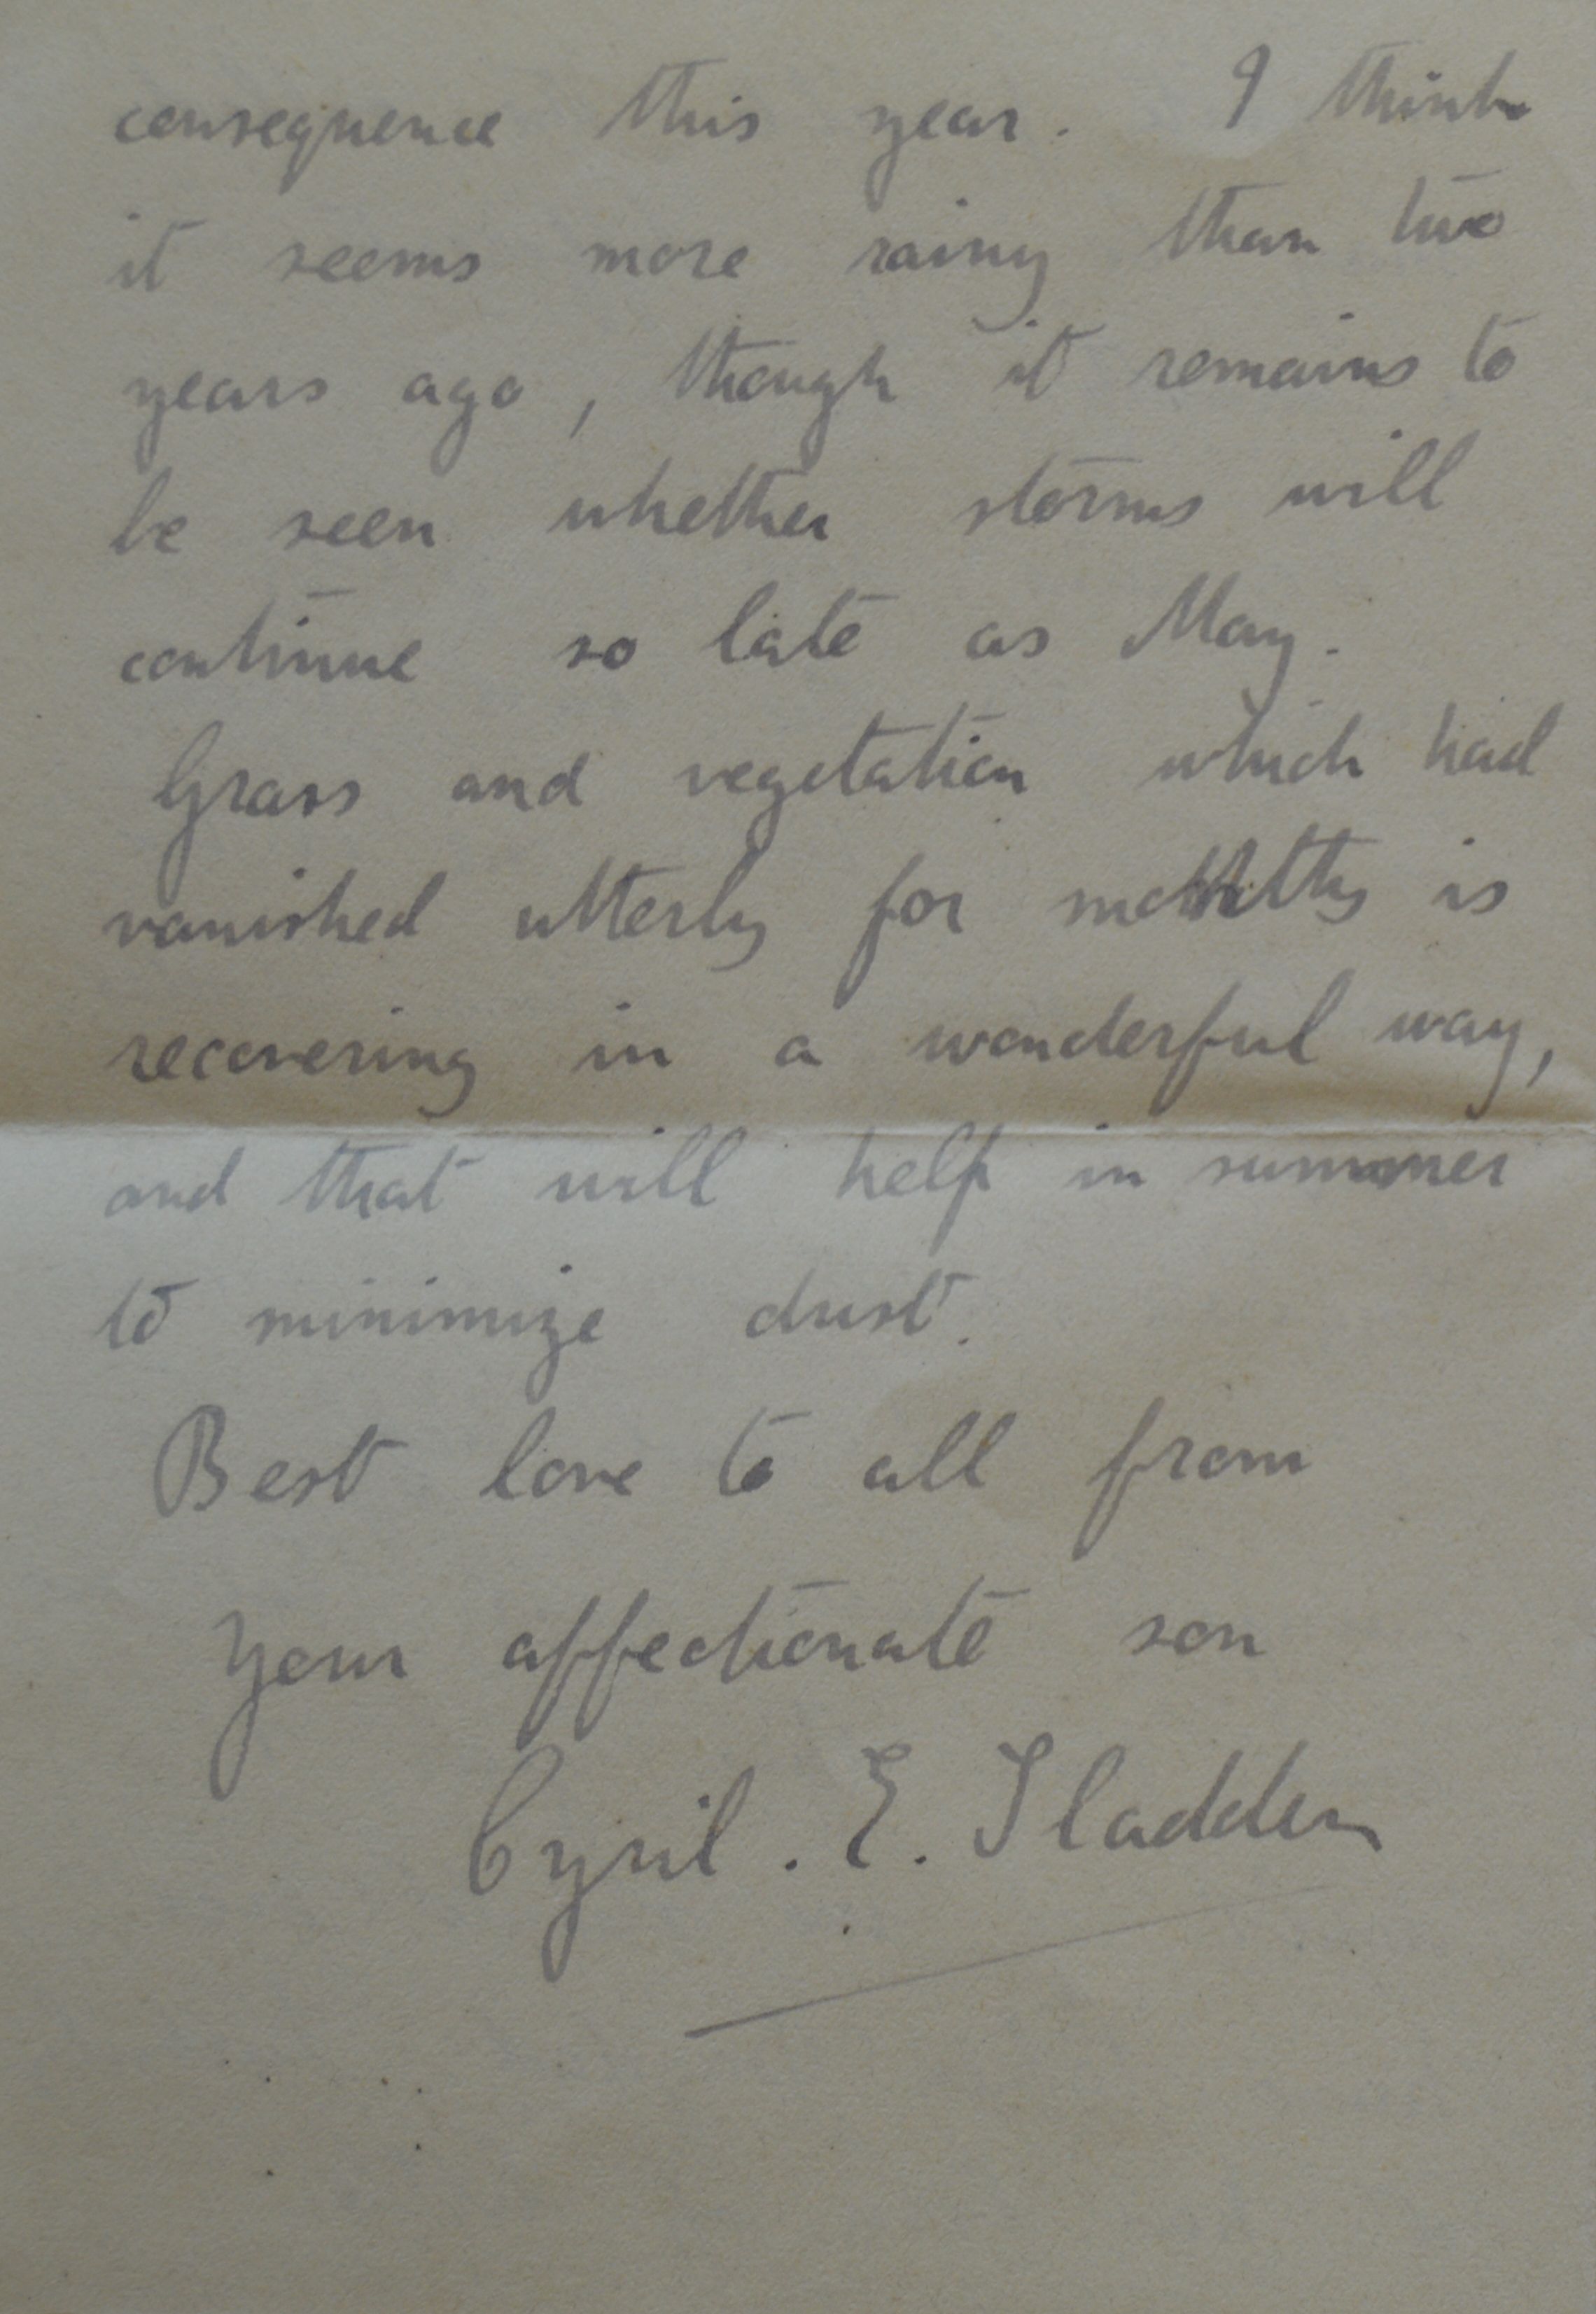 consequence this year. I think
it seems more rainy than two
years ago, though it remains to
be seen whether storms will
continue so late as May.
Grass and vegetation which had
vanished utterly for months is
recovering in a wonderful way,
and that will help in summer
to minimize dust.
Best love to all from
Your affectionate son
Cyril. E. Sladden